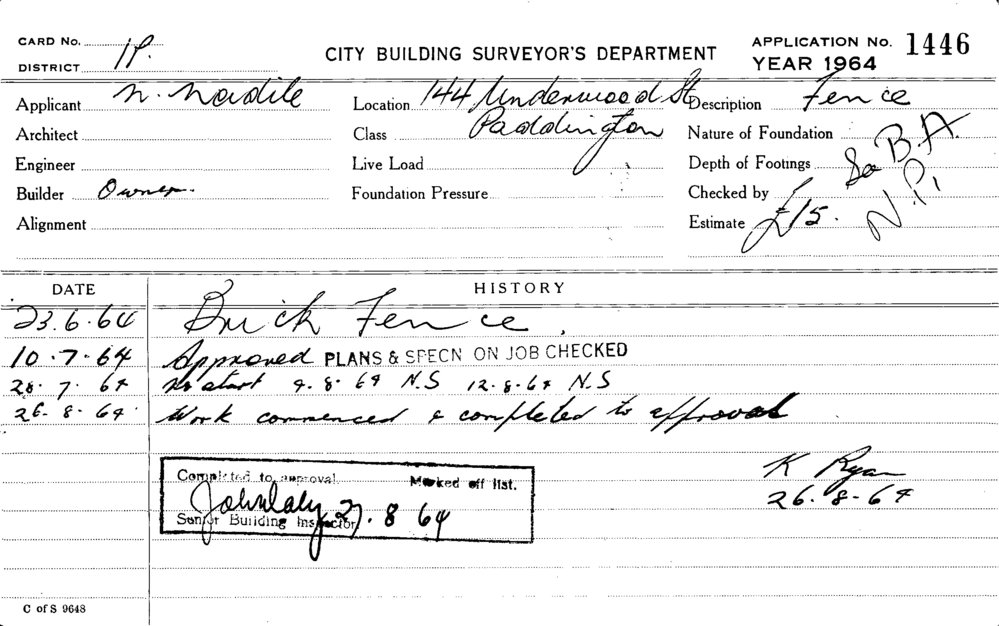 CARD No. 1P.
DISTRICT
CITY BUILDING SURVEYOR'S DEPARTMENT
APPLICATION No. 1446
YEAR 1964
Applicant N. Nadile
Location 144 Underwood St
Paddington
Description Fence
Architect
Class
Nature of Foundation
Engineer
Live Load
Depth of Footings
B.A.
N.P.
Builder Owner.
Foundation Pressure
Checked by
Alignment
Estimate £15.
DATE HISTORY
23.6.64 Brick Fence.
10.7.64 Approved PLANS & SPECN ON JOB CHECKED
28.7.64 No start 4.8.64 N.S 12.8.64 N.S
26.8.64 Work commenced & completed to approval
K Ryan
26.8.64
Completed to approval. Marked off list.
John Daly 27.8 64
Senior Building Inspector
C of S 9648